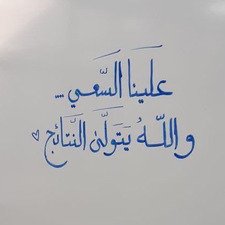 علينا السَّعي...
واللّهُ يَتولَّىٰ النَّتائج